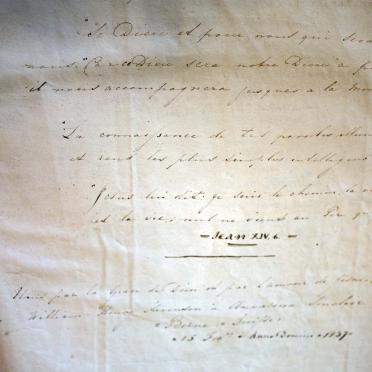 "Si Dieu est pour nous qui sera
nous." Car ce Dieu sera notre Dieu à
il nous accompagnera jusques à la mort
"La connaissance de tes paroles illumine
et rend les plus simples intelligens
"Jésus lui dit: je suis le chemin, la
et la vie; nul ne vient au Père q
— JEAN XIV. 6 —
par la Grace de Dieu et par l'amour de
William Henry à
Berne Suisse
15 Anno Domini 1837